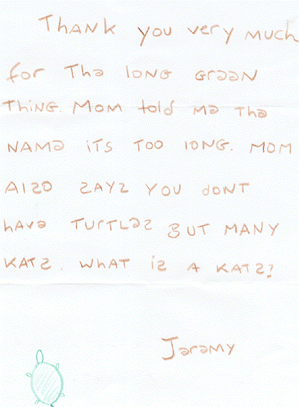 Thank you very much
for The long Green
Thing. Mom told me the
Name its too long. Mom
Also says you dont
have Turtles But Many
Kats. What is a Kats?
Jeremy